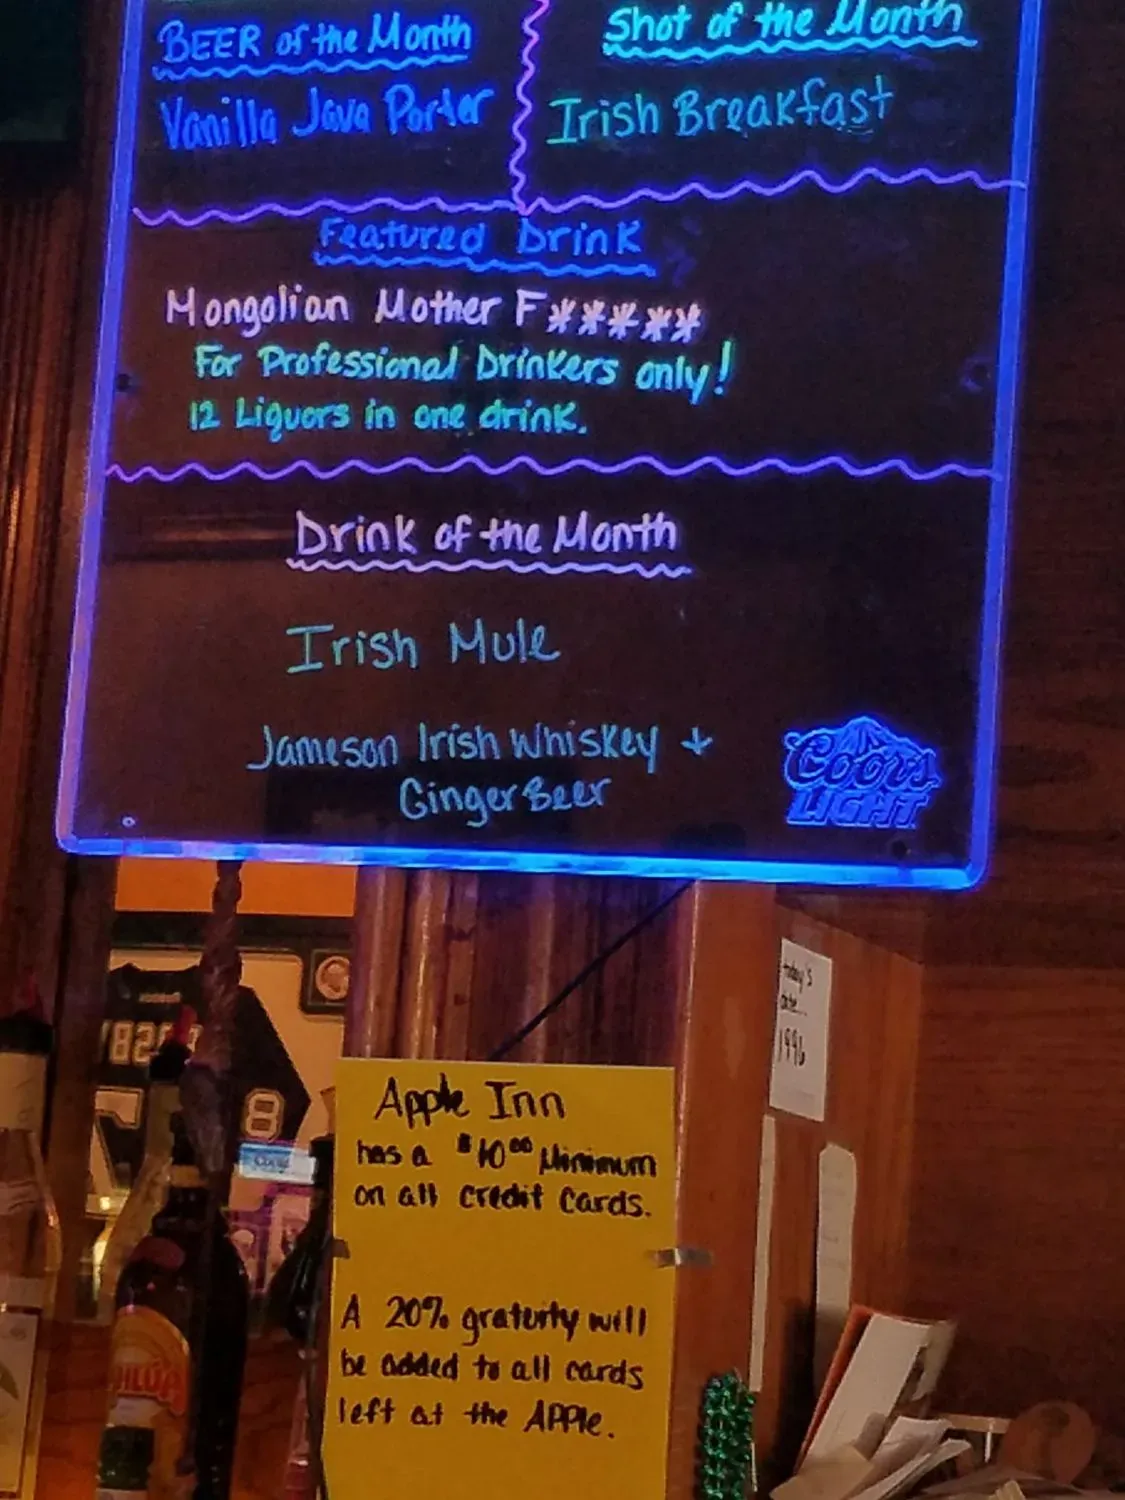 BEER of the Month
Vanilla Java Porter
Shot of the Month
Irish Breakfast
Featured Drink
Mongolian Mother F*****
For Professional Drinkers only!
12 Liquors in one drink.
Drink of the Month
Irish Mule
Jameson Irish Whiskey +
Ginger Beer
Coors
LIGHT
today's
date...
1996
8
Apple Inn
has a $10.00 Minimum
on all credit cards.
A 20% gratuity will
be added to all cards
left at the APPle.